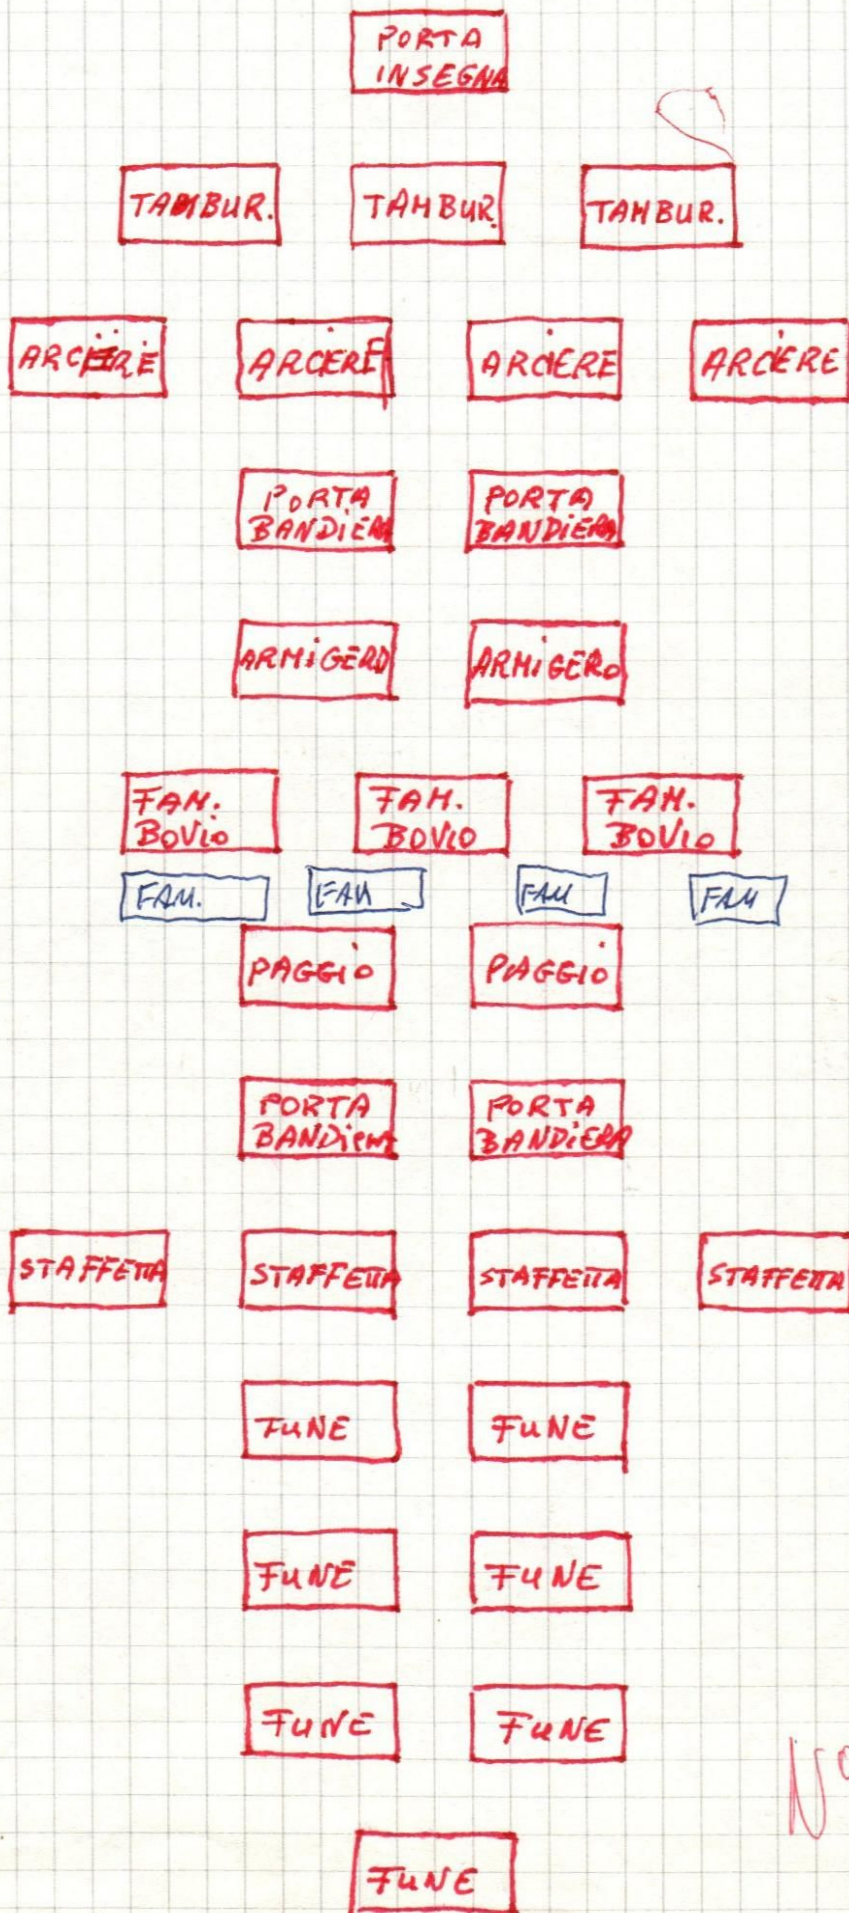 PORTA
INSEGNA
TAMBUR. TAMBUR. TAMBUR.
ARCIERE ARCIERE ARCIERE ARCIERE
PORTA PORTA
BANDIERA BANDIERA
ARMIGERO ARMIGERO
FAM. FAM. FAM.
BOVIO BOVIO BOVIO
FAM. FAM FAM FAM
PAGGIO PAGGIO
PORTA PORTA
BANDIERA BANDIERA
STAFFETTA STAFFETTA STAFFETTA STAFFETTA
FUNE FUNE
FUNE FUNE
FUNE FUNE
N°
FUNE